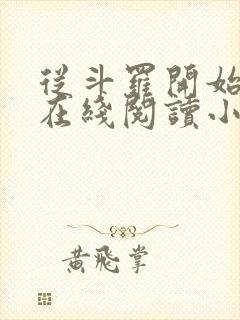 從斗羅開始
在綫閱讀小
黃飛掌